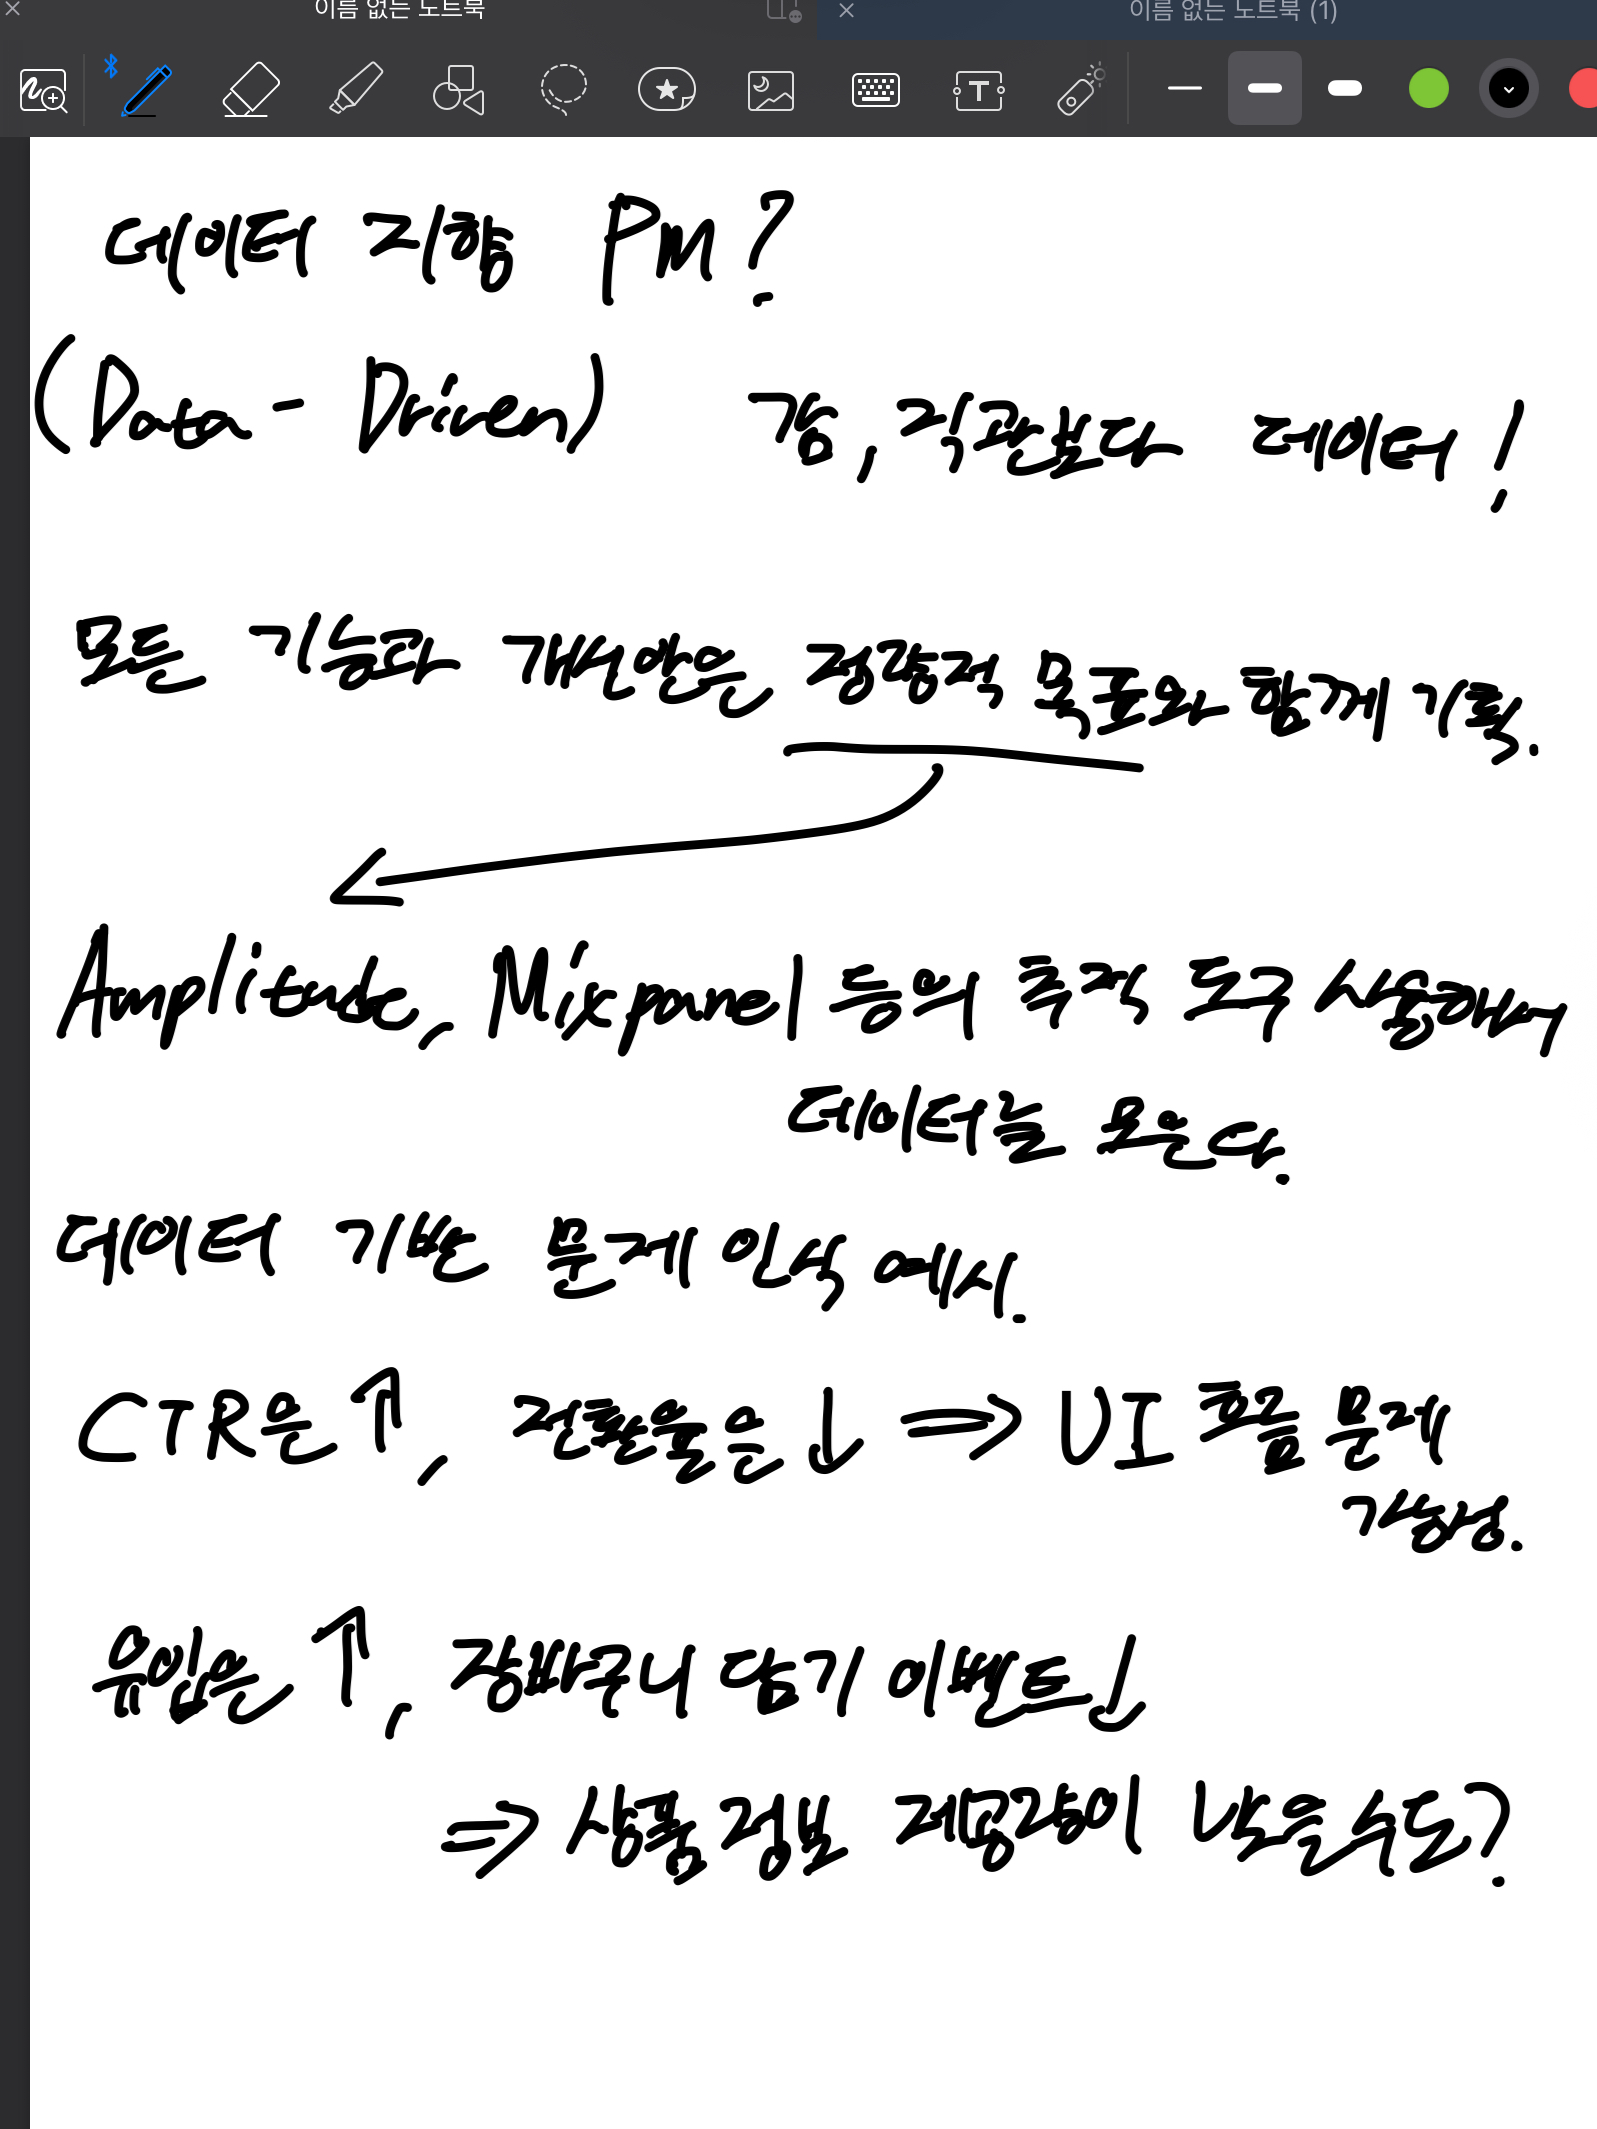 이름 없는 노트북
이름 없는 노트북 (1)
데이터 지향 PM?
(Data - Driven) 감, 직관보다 데이터!
모든 기능과 개선안은 정량적 목표와 함께 기록.
Amplitude, Mixpanel 등의 추적 도구 사용해서
데이터를 모은다.
데이터 기반 문제 인식 예시.
CTR은 ↑, 전환율은 ↓ ⇒ UI 흐름 문제
가능성.
유입은 ↑, 장바구니 담기 이벤트↓
⇒ 상품 정보 제공량이 낮을수도?